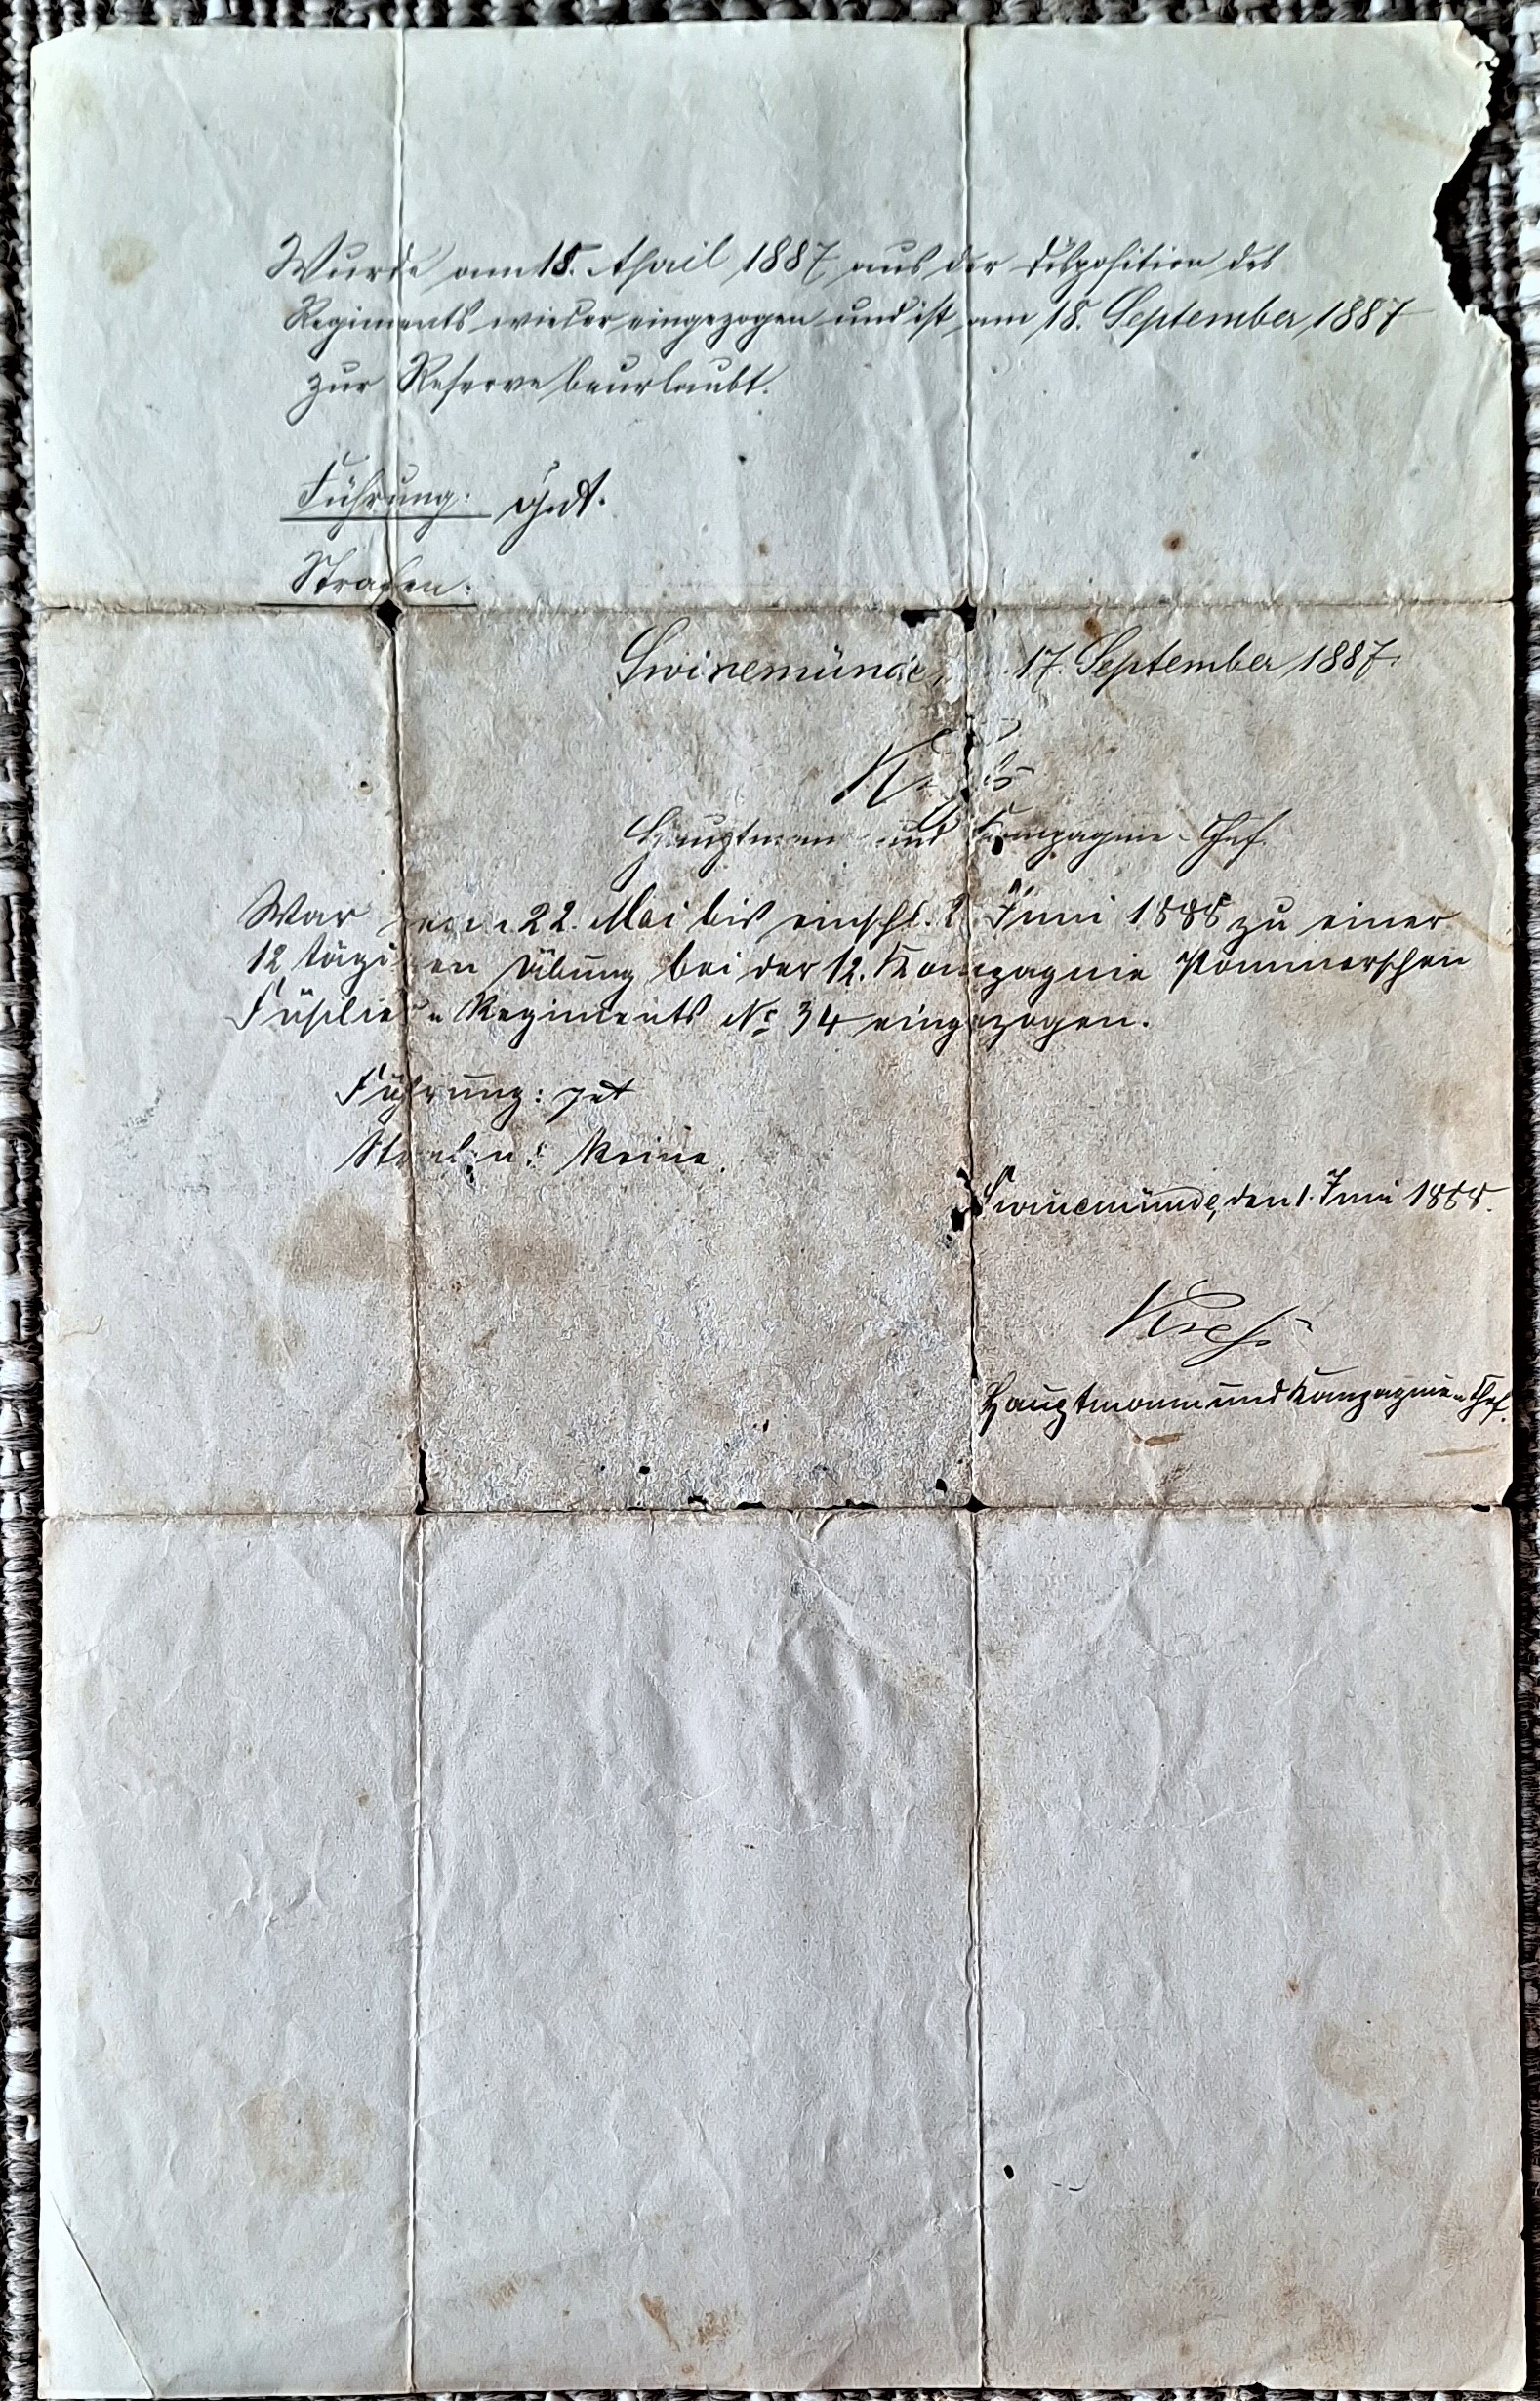 Wurde am 18. April 1887 aus der Disposition des
Regiments wieder eingezogen und ist am 18. September 1887
zur Reserve beurlaubt.
Führung: Gut.
Strafen:
Swinemünde, 17. September 1887.
Hauptmann und Kompagnie-Chef.
War vom 22. Mai bis einschl. 2. Juni 1888 zu einer
12 tägigen Übung bei der 12. Kompagnie Pommerschen
Füsilier-Regiments No 34 eingezogen.
Führung: gut
Strafen: Keine.
Swinemünde, den 1. Juni 1888.
Hauptmann und Kompagnie-Chef.